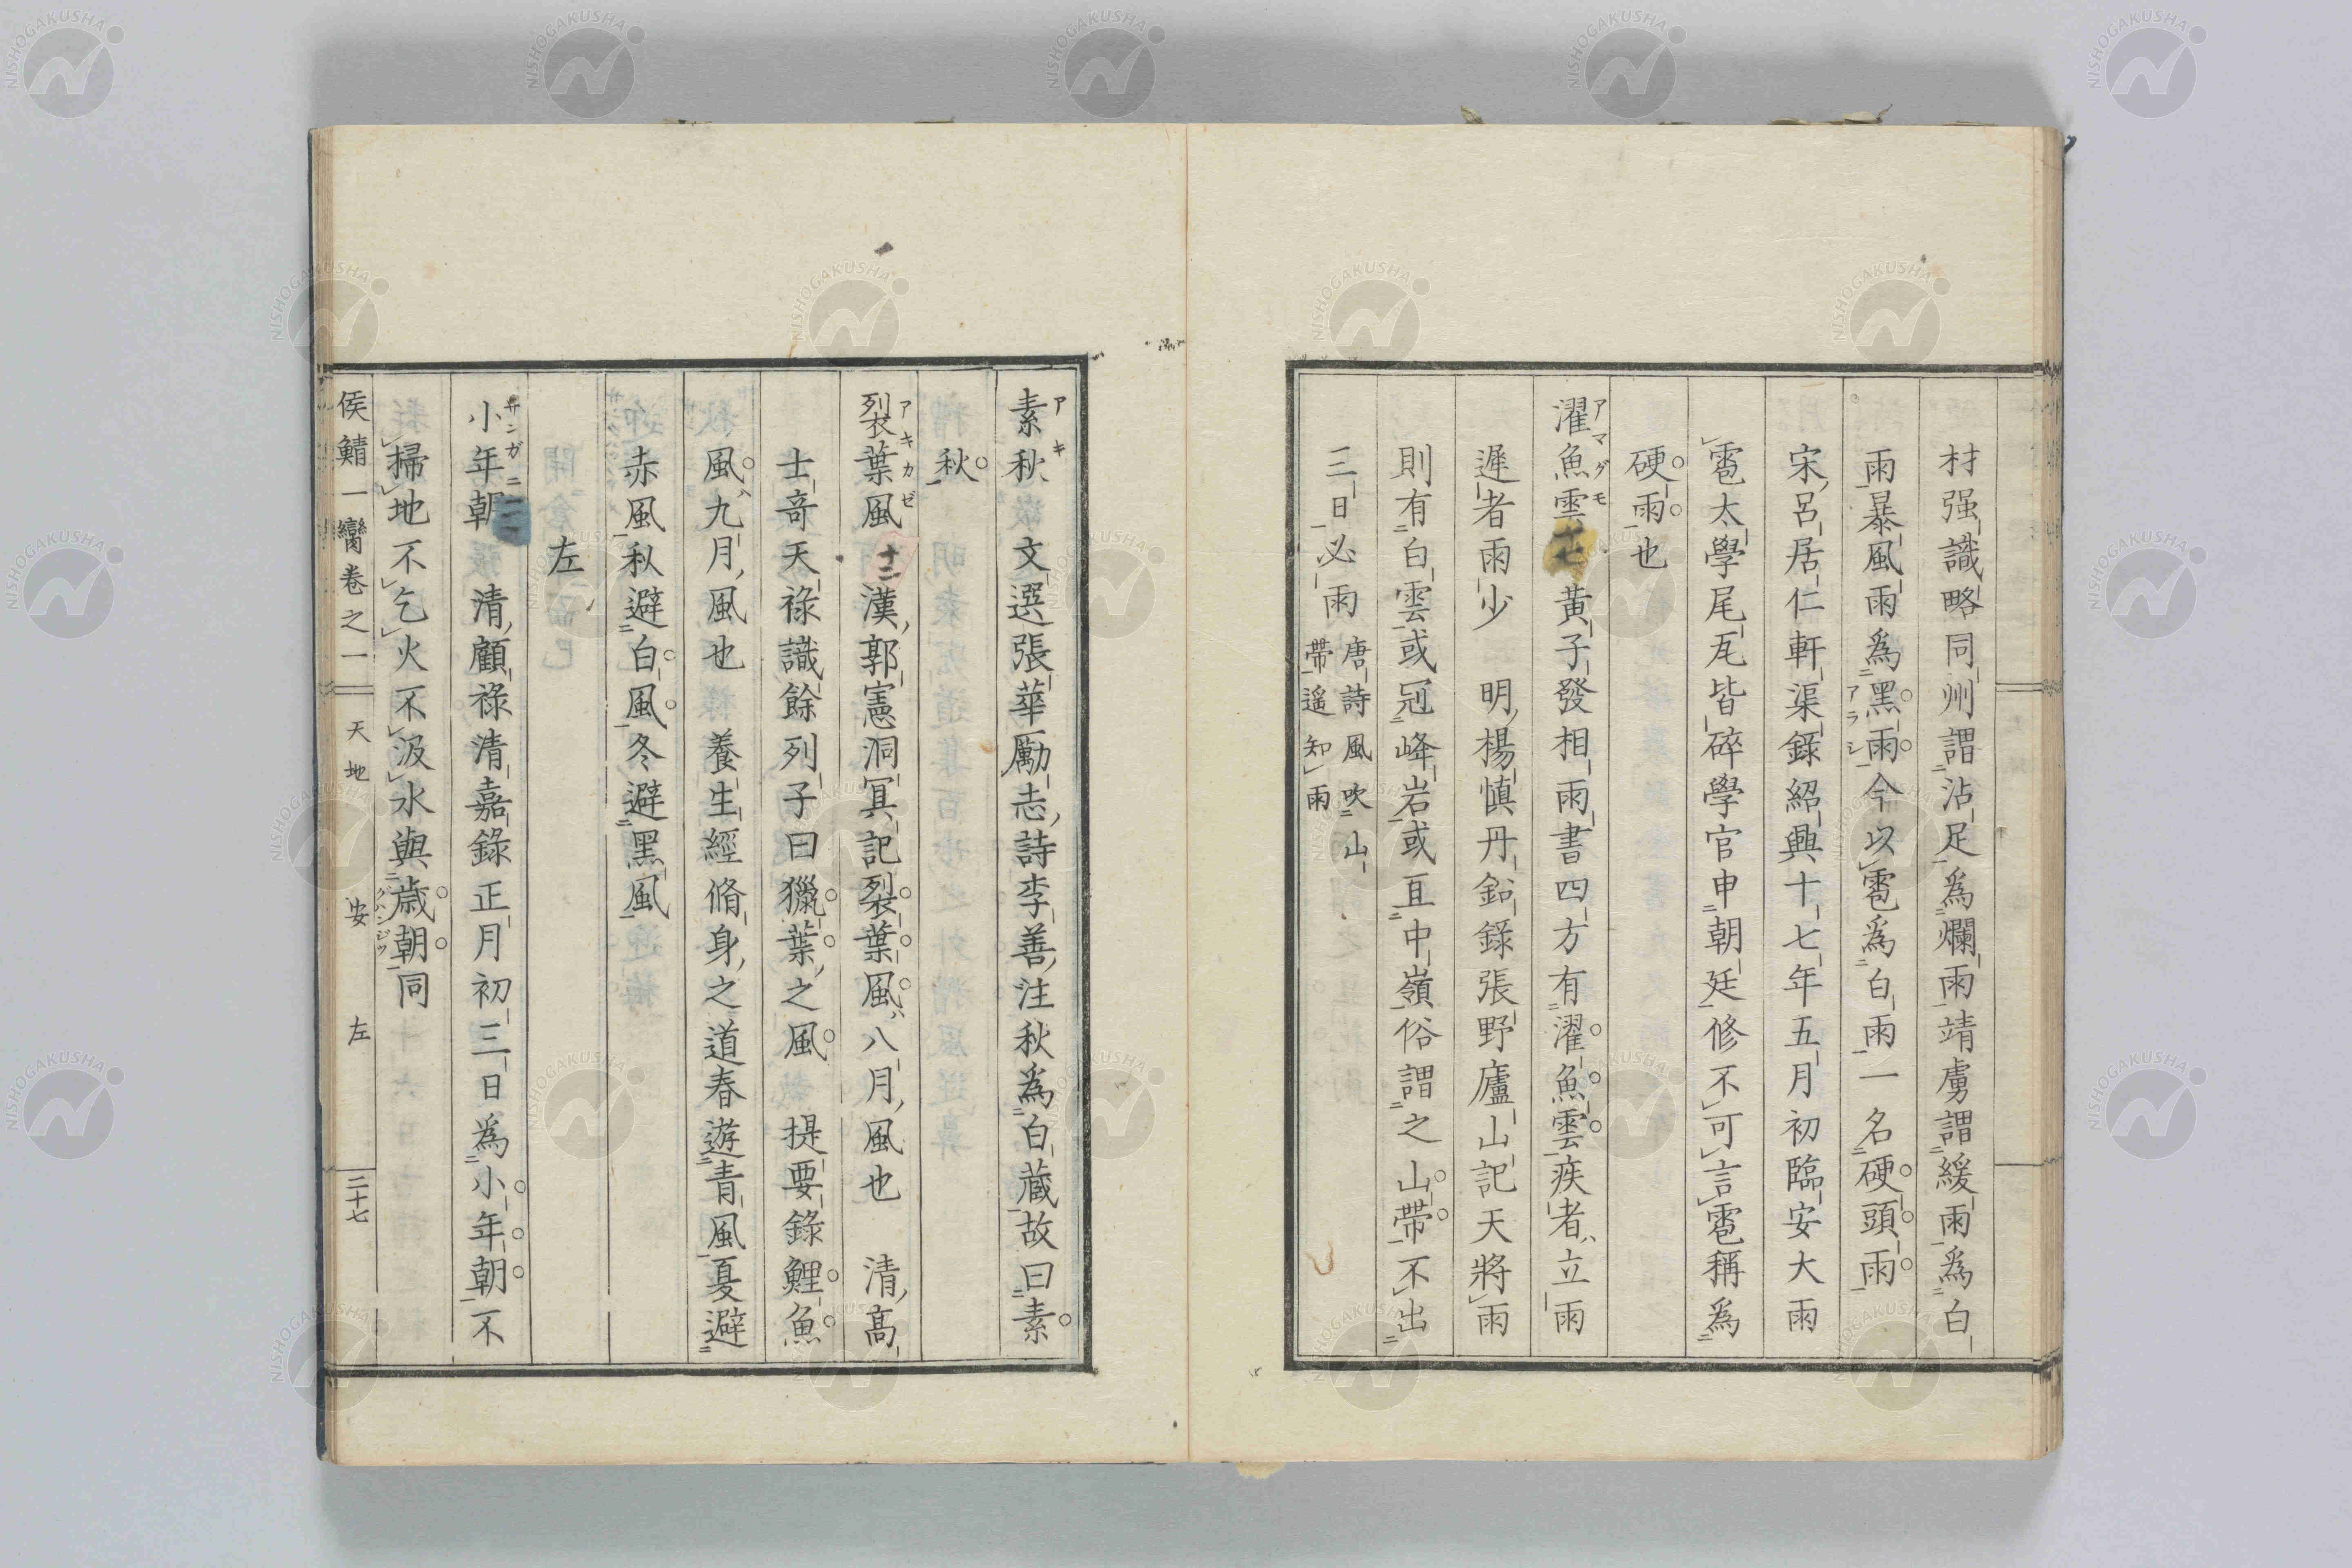 材强識略同州謂沾足為爛雨靖虜謂緩雨為白
雨暴風雨為黑雨今以雹為白雨一名硬頭雨
アラシ
宋呂居仁軒渠錄紹興十七年五月初臨安大雨
雹太學尾瓦皆碎學官申朝廷修不可言雹稱為
硬雨也
濯魚雲十七黃子發相雨書四方有濯魚雲疾者ハ立雨
アマグモ
遲者雨少 明楊慎丹鉛錄張野廬山記天將雨
則有白雲或冠峰岩或亘中嶺俗謂之山帶不出
三日必雨
唐詩風吹山
帶遙知雨
素秋 文選張華勵志詩李善注秋為白藏故曰素
アキ
秋
裂葉風十二漢郭憲洞冥記裂葉風ハ八月風也 清高
アキカゼ
士奇天祿識餘列子曰獵葉之風 提要錄鯉魚
風ハ九月風也 養生經脩身之道春遊青風夏避
赤風秋避白風冬避黑風
左
小年朝二 清顧祿清嘉錄正月初三日為小年朝不
サンガニチ
掃地不乞火不汲水與歲朝同
グハンジツ
侯鯖一臠卷之一 天地 安 左 二十七
NISHOGAKUSHA